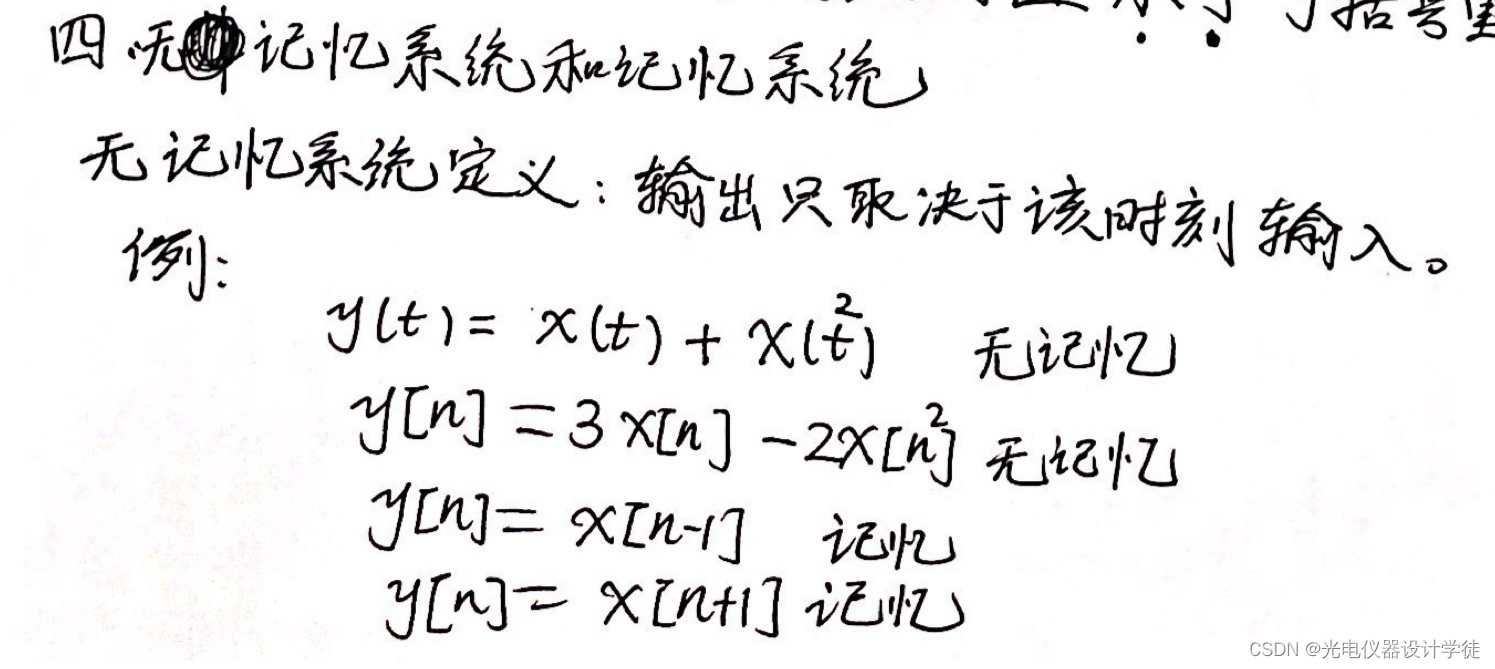 括号里
四.无记忆系统和记忆系统
无记忆系统定义:输出只取决于该时刻输入。
例:
y(t)= x(t)+x(t²) 无记忆
y[n]=3x[n]-2x[n²] 无记忆
y[n]= x[n-1] 记忆
y[n]= x[n+1] 记忆
CSDN @光电仪器设计学徒